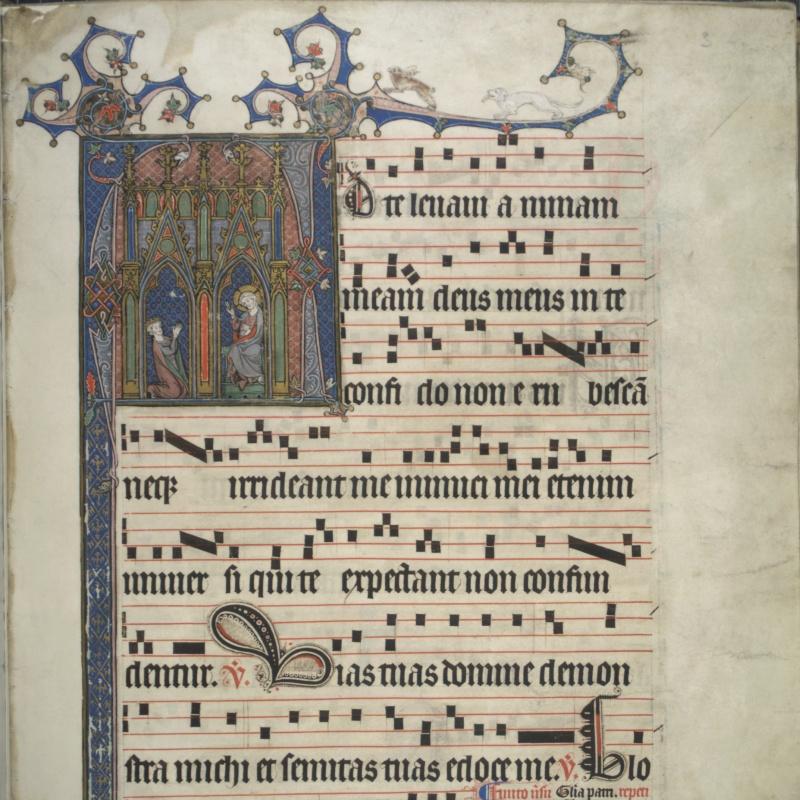 D te leuaui a nimam
meam deus meus in te
confi do non e ru bescā
neqꝫ irrideant me inimici mei etenim
uniuer si qui te expectant non confun
dentur. v̇. Vias tuas domine demon
stra michi et semitas tuas edoce me. v̇. Glo
Finito ūsu Glīa patri. repeti